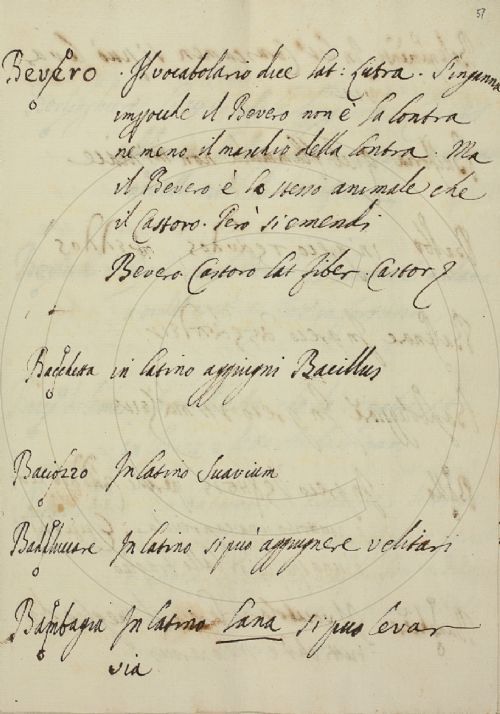 57
Bevero . Il vocabolario dice lat: Lutra . S'inganna
impocche il Bevero non è la lontra
ne meno il maschio della lontra. Ma
il Bevero è lo stesso animale che
il Castoro. Però si emendi
Bevero Castoro lat fiber Castor
Bacchetta in latino aggiugni Bacillus
Baciozzo In latino Suavium
Badaluccare In latino si può aggiugnere velitari
Bambagia In latino Lana si può levar
via